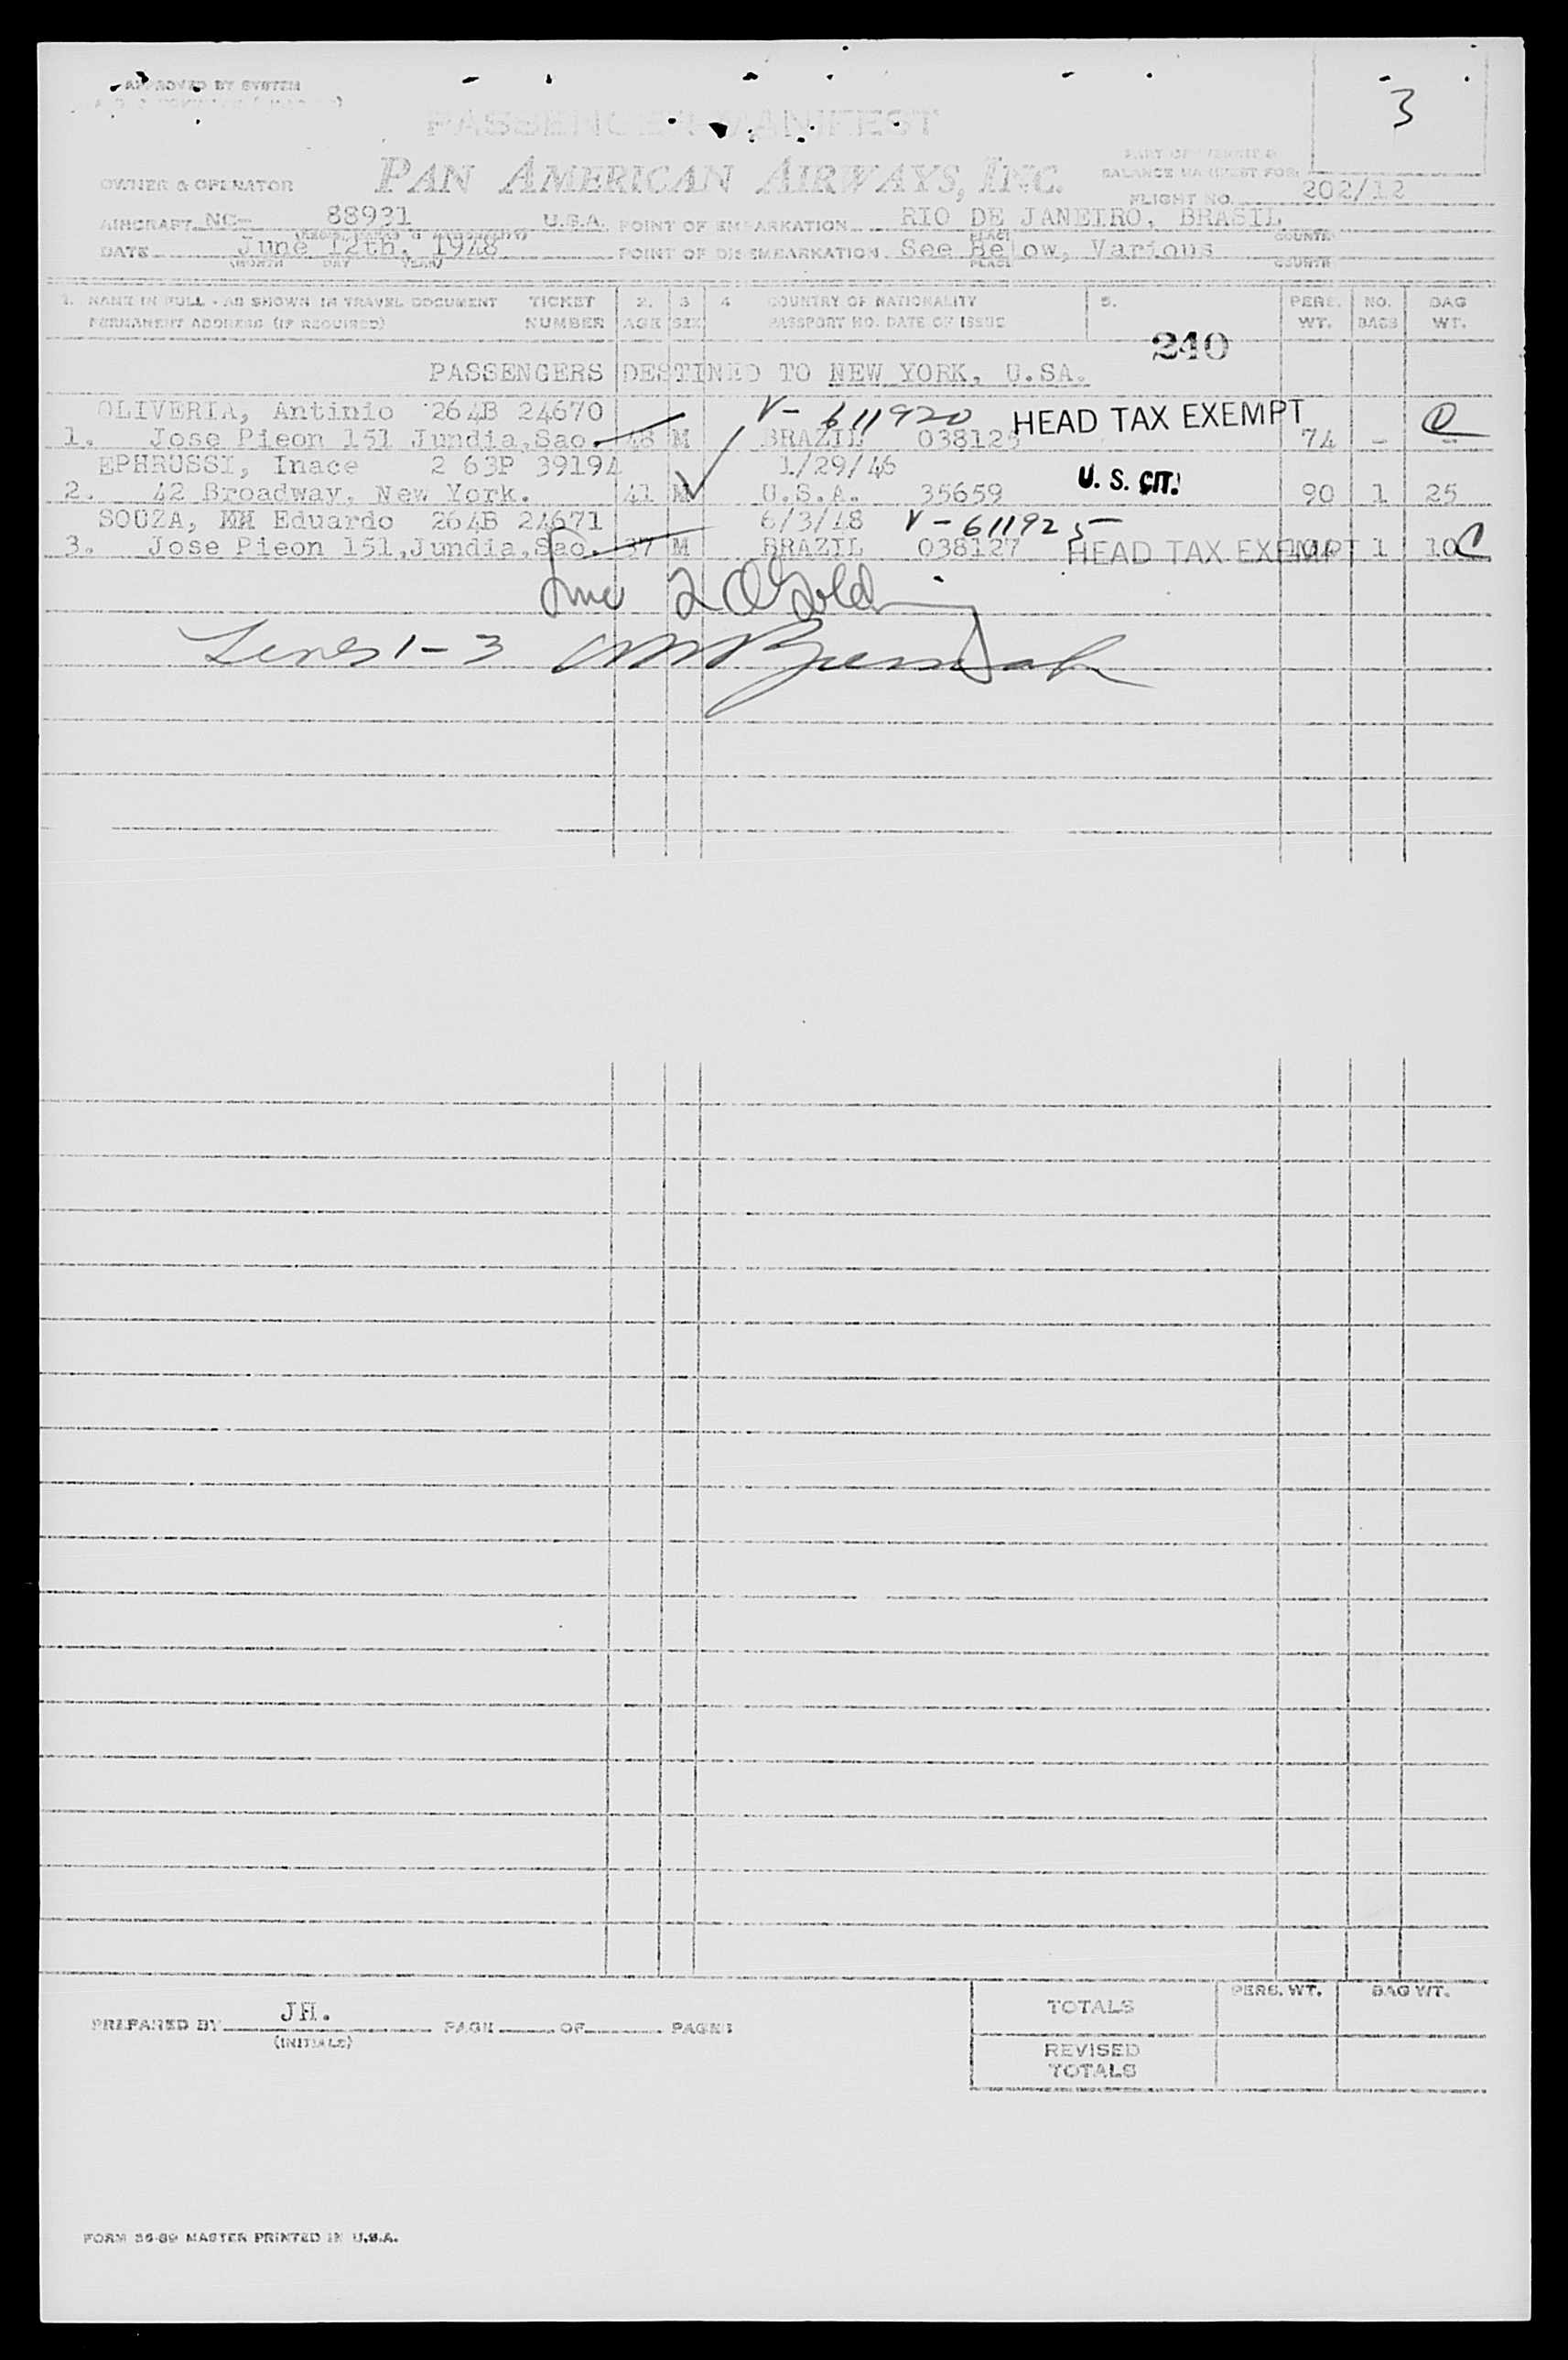 APPROVED BY SYSTEM
3
PASSENGER MANIFEST
PAN AMERICAN AIRWAYS, INC.
OWNER & OPERATOR
PART OF WEIGHT &
BALANCE MANIFEST FOR
FLIGHT NO. 202/12
AIRCRAFT NC- 88931 U.S.A. POINT OF EMBARKATION RIO DE JANEIRO, BRASIL
(REGIS. MARKS & NATIONALITY) PLACE COUNTRY
DATE June 12th, 1948 POINT OF DISEMBARKATION See Below, Various
(MONTH DAY YEAR) PLACE COUNTRY
1. NAME IN FULL - AS SHOWN IN TRAVEL DOCUMENT TICKET 2. 3 4 COUNTRY OF NATIONALITY 5. PERS. NO. BAG
PERMANENT ADDRESS (IF REQUIRED) NUMBER AGE SEX PASSPORT NO. DATE OF ISSUE WT. BAGS WT.
240
PASSENGERS DESTINED TO NEW YORK, U.SA.
OLIVERIA, Antinio 264B 24670 V-611920 HEAD TAX EXEMPT
1. Jose Pieon 151 Jundia,Sao. 48 M BRAZIL 038125 74 - -
EPHRUSSI, Inace 2 63P 39194 1/29/46 U. S. CIT.
2. 42 Broadway, New York. 41 M U.S.A. 35659 90 1 25
SOUZA, MM Eduardo 264B 24671 6/3/48 V-611925
3. Jose Pieon 151,Jundia,Sao. 37 M BRAZIL 038127 HEAD TAX EXEMPT 1 10 C
Line 2
Lines 1-3
PREPARED BY JH. PAGE OF PAGES
(INITIALS)
TOTALS PERS. WT. BAG WT.
REVISED
TOTALS
FORM 36-89 MASTER PRINTED IN U.S.A.